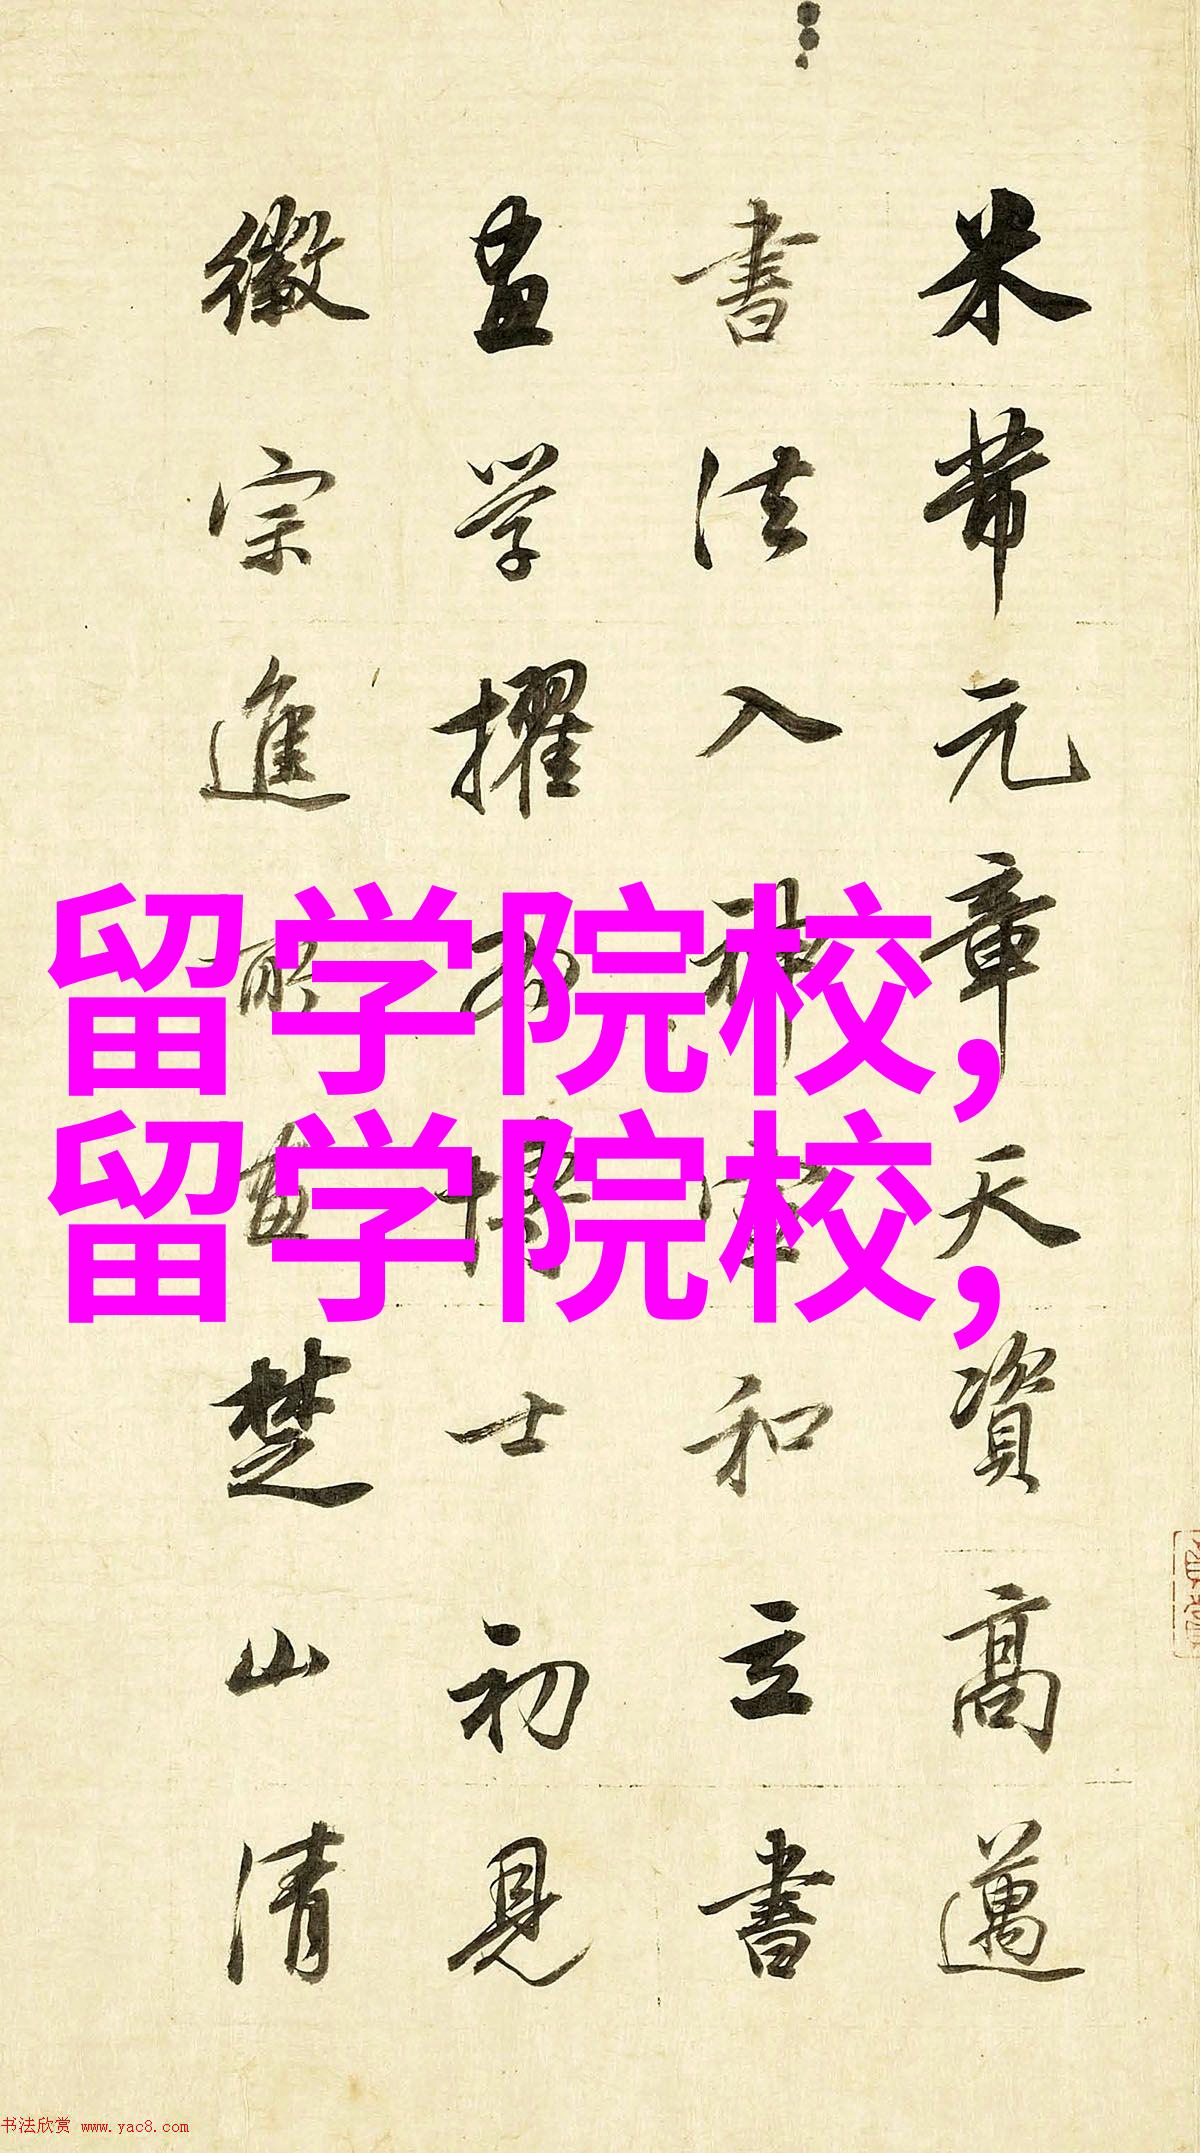 米芾元章天資高邁
書法入神宣和立書
畫学擢為博士初見
徽宗進所畫楚山清
留学院校,
留学院校,
书法欣赏 www.yac8.com